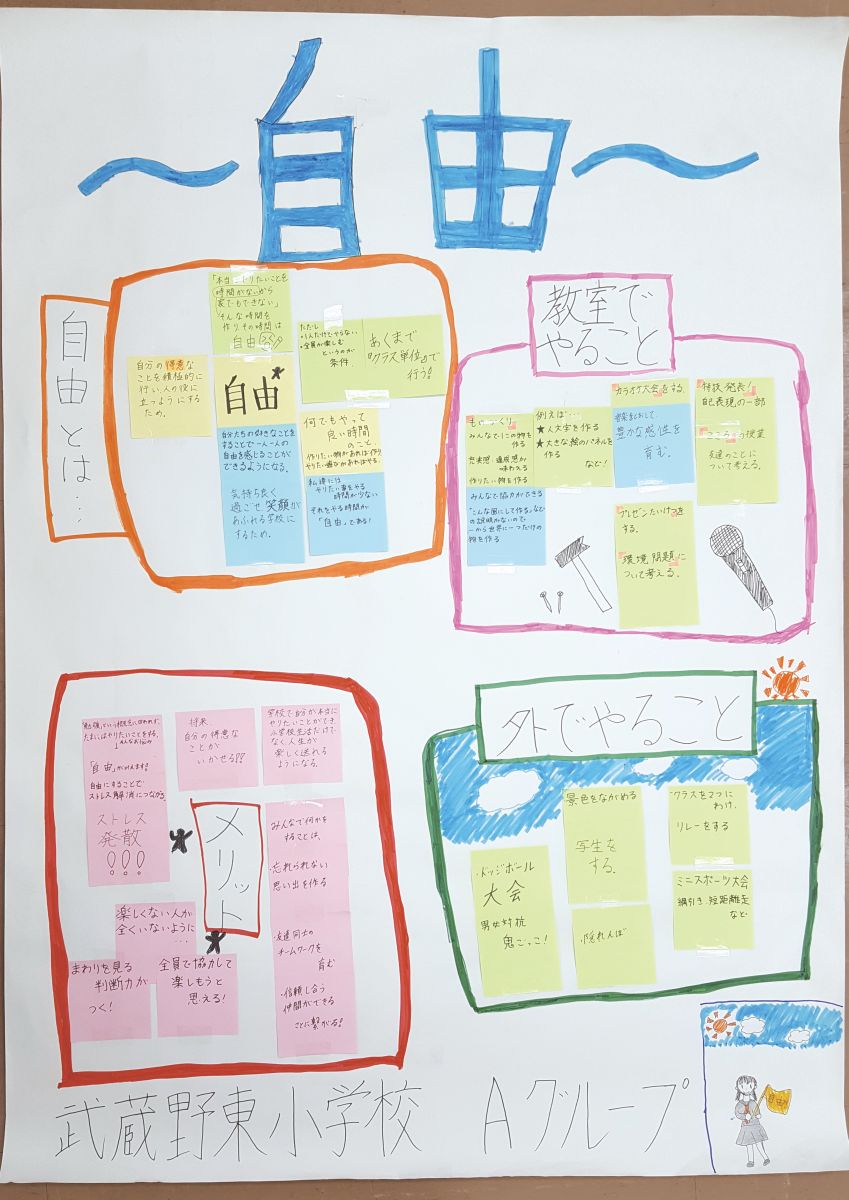 ～自由～
自由とは…
「本当にやりたいことを
時間がないから
家でもできない」
そんな時間を
作り、その時間は
自由
ただし
・1人だけでやらない
・全員が楽しむ
というのが
条件。
あくまで
『クラス単位』で
行う!
自分の得意な
ことを積極的に
行い人の役に
立つようにする
ため。
自由
自分たちの好きなことを
することで一人一人の
自由を感じることが
できるようになる。
気持ち良く
過ごせ笑顔が
あふれる学校に
するため。
何でもやって
良い時間
のこと
作りたい物があれば作り
やりたい遊びがあればやる。
私達には
やりたい事をやる
時間が少ない
それをやる時間が
「自由」である!
教室で
やること
ものづくり
みんなで1この物を
作る
充実感・達成感が
味わえる
作りたい物を作る
みんなで協力ができる
"こんな風にして作る"などの
の説明がないので
一から世界に一つだけの
物を作る
例えば…
★人文字を作る
★大きな絵のパネルを
作る
など!
カラオケ大会をする。
音楽をとおして、
豊かな感性を
育む。
特技発表!
自己表現の一部
こころの授業
友達のことに
ついて考える。
プレゼンたいけつを
する。
環境問題に
ついて考える。
メリット
「勉強」という概念に囚われず、
たまにはやりたいことをする。
「自由」が叶えます!
自由にすることで
ストレス解消につながる。
ストレス
発散
!!!
将来、
自分の得意な
ことが
いかせる!?
学校で自分が本当に
やりたいことができ
小学校生活だけで
なく人生が
楽しく送れる
ようになる。
みんなで何かを
することは、
・忘れられない
思い出を作る
・友達同士の
チームワークを
育む
・信頼し合う
仲間ができる
ことに繋がる!
楽しくない人が
全くいないように
…
まわりを見る
判断力が
つく!
全員で協力して
楽しもうと
思える!
外でやること
・ドッジボール
大会
男女対抗
鬼ごっこ!
景色をながめる
写生を
する。
・隠れんぼ
クラスを2つに
わけ、
リレーをする
ミニスポーツ大会
綱引き、短距離走
など
武蔵野東小学校 Aグループ
自由